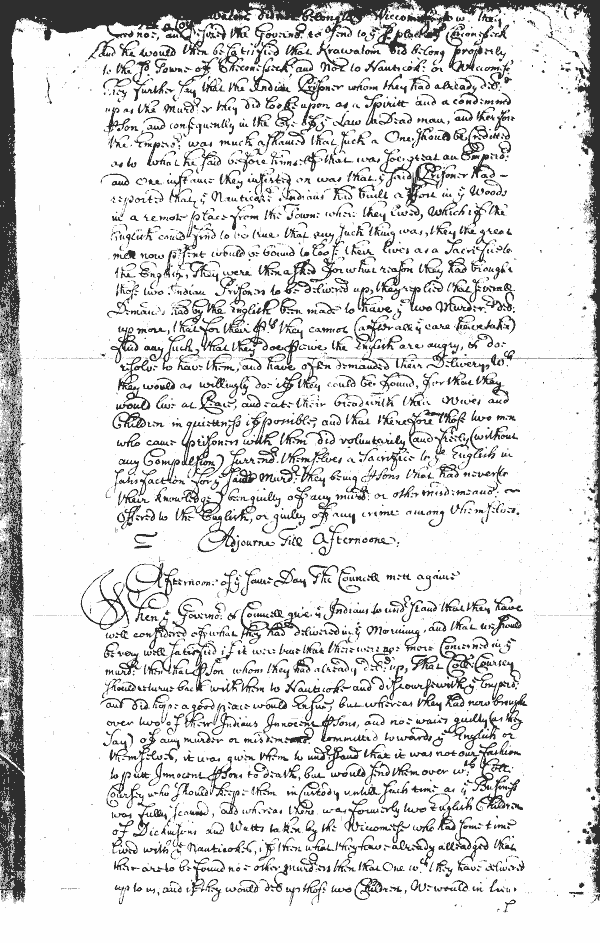 Krawalom did not belong to Wiccomiss now they
and desired the Governor to send to ye place of Chiconeseck
And he would then be satisfied that Krawalom did belong properly
to the sd Towne of Chiconeseck, and not to Nanticoke or Wiccomiss
They further say that the Indian Prisoner whom they had already delivrd
up as the Murdrer they did looke upon as a Spiritt and a condemned
Pson, and consequently in the Eye of ye Law a Dead man, and therefore
the Emperor was much ashamed that such a One should be credited
as to what he said before himselfe that was soe great an Emperor
and One instance they insisted on was that ye said Prisoner had
reported that ye Nanticoke Indians had built a Fort in ye Woods
in a remote place from the Towne where they lived, which if the
English could find to be true that any such thing was, they the great
men now psent would be bound to loose their lives as a Sacrifice to
the English. They were then asked for what reason they had brought
those two Indian Prisoners to be delivered up, they replied that severall
Demands had by the English been made to have ye two Murdrers delivrd
up more, that for their pts they cannot (after all ye care have taken)
find any such, that they doe pceive the English are angry, & doe
resolve to have them, and have often demanded their Delivery wch
they would as willingly doe if they could be found, for that they
would live at Peace, and eate their bread with their Wives and
Children in quietness if possible, and that therefore those two men
who came prisoners with them did voluntarily (and freely without
any Compulsion) surrendr themselves a Sacrifice to ye English in
satisfaction for ye said Murdr they being Psons that had never to
their knowledge been guilty of any murdr or other misdemeanor
Offered to the English, or guilty of any crime among themselves.
Adjourne Till Afternoone.
Afternoone of ye same Day The Councell mett againe
When ye Governor & Councell give ye Indians to undrstand that they have
well considered of what they had delivered in ye Morning, and that we should
be very well satisfied if it were true that there were noe more Concerned in ye
murdr then that Pson whom they had already delivrd up, That Coll Coursey
should returne back with them to Nanticoke and discourse with ye Emperor
and did hope a good peace would Ensue, but whereas they had now brought
over two of their Indians Innocent Psons, and noe waies guilty (as they
say) of any murder or misdemeanor committed towards ye English or
themselves, it was given them to undrstand that it was not our fashion
to putt Innocent Psons to death, but would send them over wth Coll
Coursey who should keepe them in custody untill such time as ye business
was fully scanned, and whereas there was formerly two English Children
of Dickinsons and Watts taken by the Wiccomiss who had some time
lived with ye Nanticokes, if then what they have already alleadged that
there are to be found noe other murdrers then that One wch they have delivered
up to us, and if they would delivr up those two Children, We would in lieu